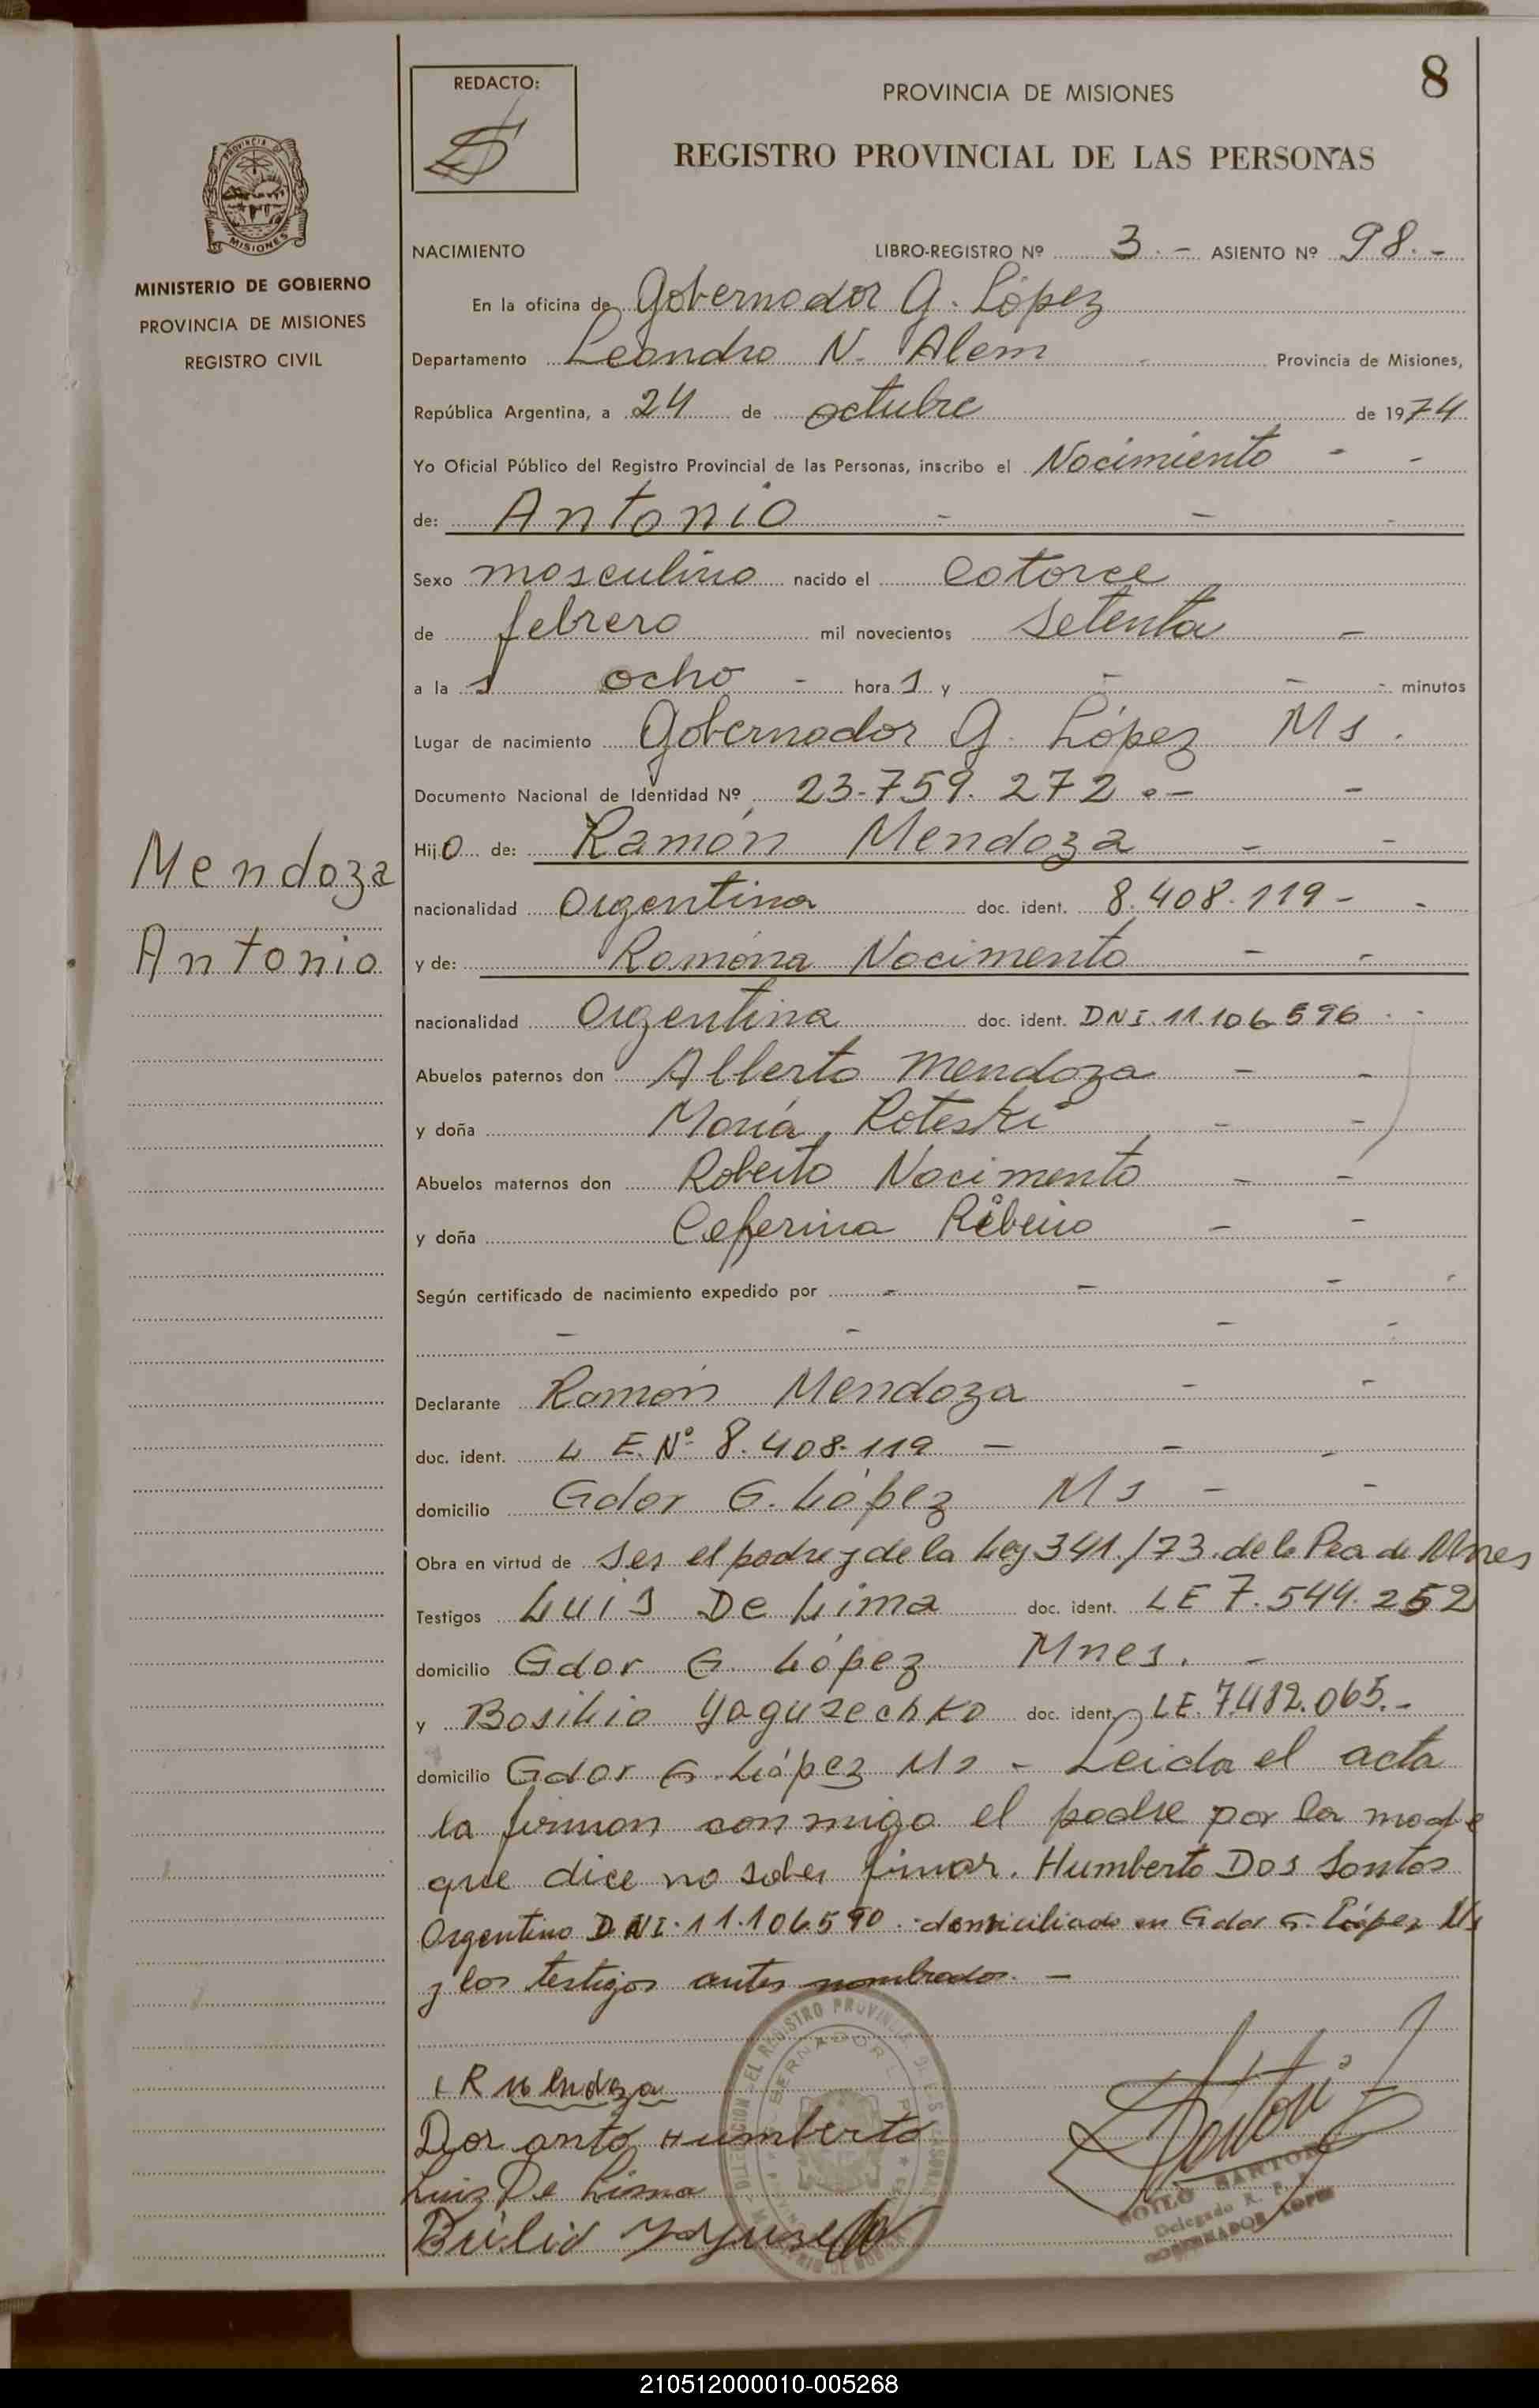 8
REDACTO:
PROVINCIA DE MISIONES
REGISTRO PROVINCIAL DE LAS PERSONAS
MISIONES
MINISTERIO DE GOBIERNO
PROVINCIA DE MISIONES
REGISTRO CIVIL
NACIMIENTO LIBRO-REGISTRO Nº 3.- ASIENTO Nº 98.-
En la oficina de Gobernador G. López
Departamento Leandro N. Alem - Provincia de Misiones,
República Argentina, a 24 de octubre de 1974
Yo Oficial Público del Registro Provincial de las Personas, inscribo el Nacimiento - -
de: Antonio - - -
Sexo masculino nacido el catorce
de febrero mil novecientos setenta -
a la s ocho - hora s y - - - minutos
Lugar de nacimiento Gobernador G. López Ms.
Documento Nacional de Identidad Nº 23-759.272.- -
Hijo de: Ramón Mendoza - -
Mendoza
Antonio
nacionalidad Argentina doc. ident. 8.408.119 - -
y de: Ramona Nacimento - -
nacionalidad Argentina doc. ident. DNI.11.106.596
Abuelos paternos don Alberto Mendoza - -
y doña María Roteski - -
Abuelos maternos don Roberto Nacimento - -
y doña Ceferina Ribeiro - -
Según certificado de nacimiento expedido por - - - -
- - - -
Declarante Ramón Mendoza - -
doc. ident. L E. Nº 8.408.119 - - -
domicilio Gdor G. López Ms - -
Obra en virtud de ser el padre y de la Ley 341./73. de la Pcia de Mnes
Testigos Luis De Lima doc. ident. LE 7.544.252
domicilio Gdor G. López Mnes. -
y Basilio Yaguzechko doc. ident. LE. 7.482.065.-
domicilio Gdor G. López Ms - Leida el acta
la firman conmigo el padre por la madre
que dice no saber firmar. Humberto Dos Santos
Argentino DNI.11.106.590. domiciliado en Gdor G. López Ms
y los testigos antes nombrados. -
R Mendoza
Dos anto Humberto
Luiz De Lima
SANTO
Delegado R. P.
GOBERNADOR LOPEZ
210512000010-005268